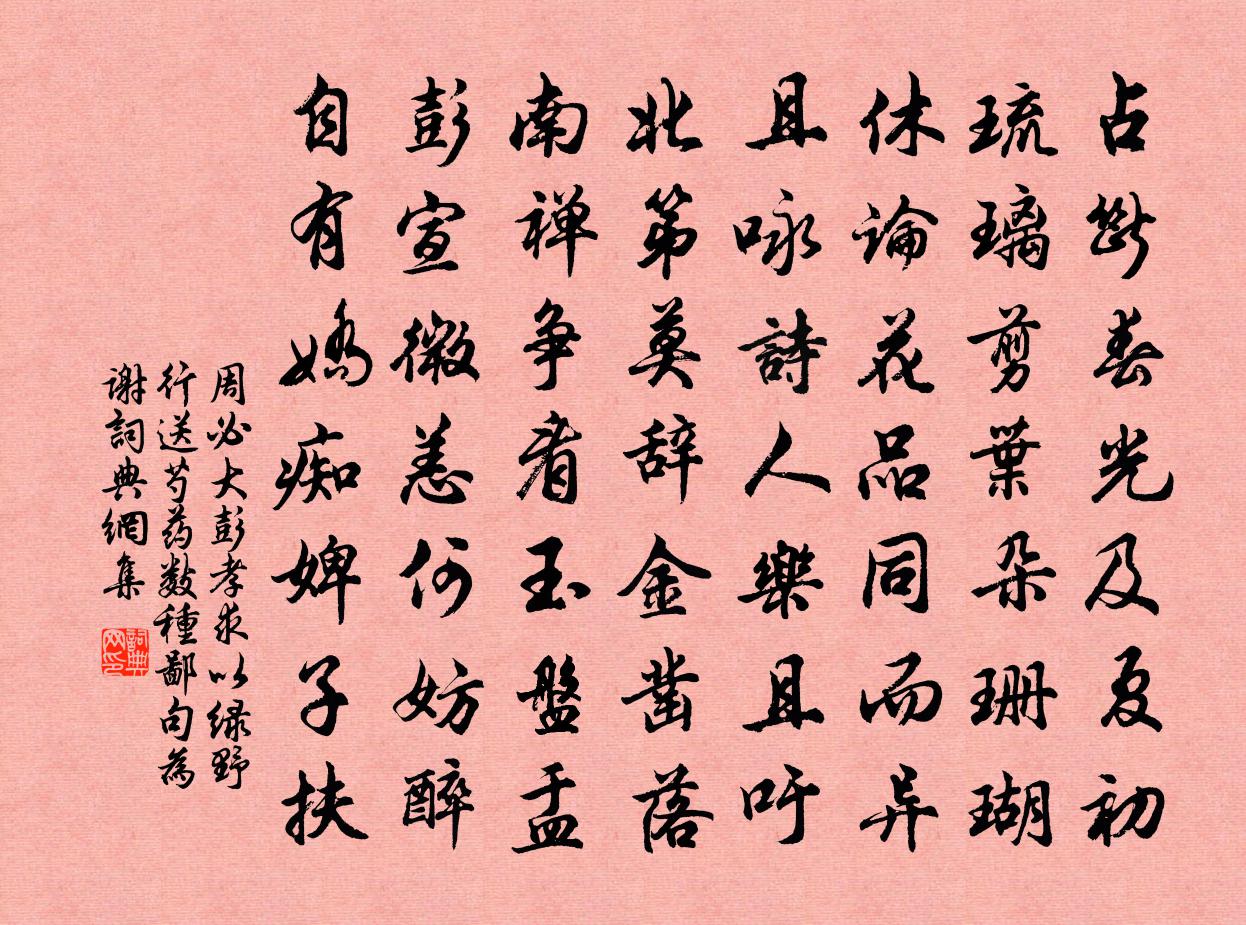 占斷春光及夏初
琉璃剪葉朵珊瑚
休論花品同而异
且咏詩人樂且吁
北第莫辞金凿落
南禅争看玉盤盂
彭宣微恙何妨醉
自有嬌痴婢子扶
周必大彭孝求以緑野
行送芍药数種鄙句為
谢詞典網集
詞典网印